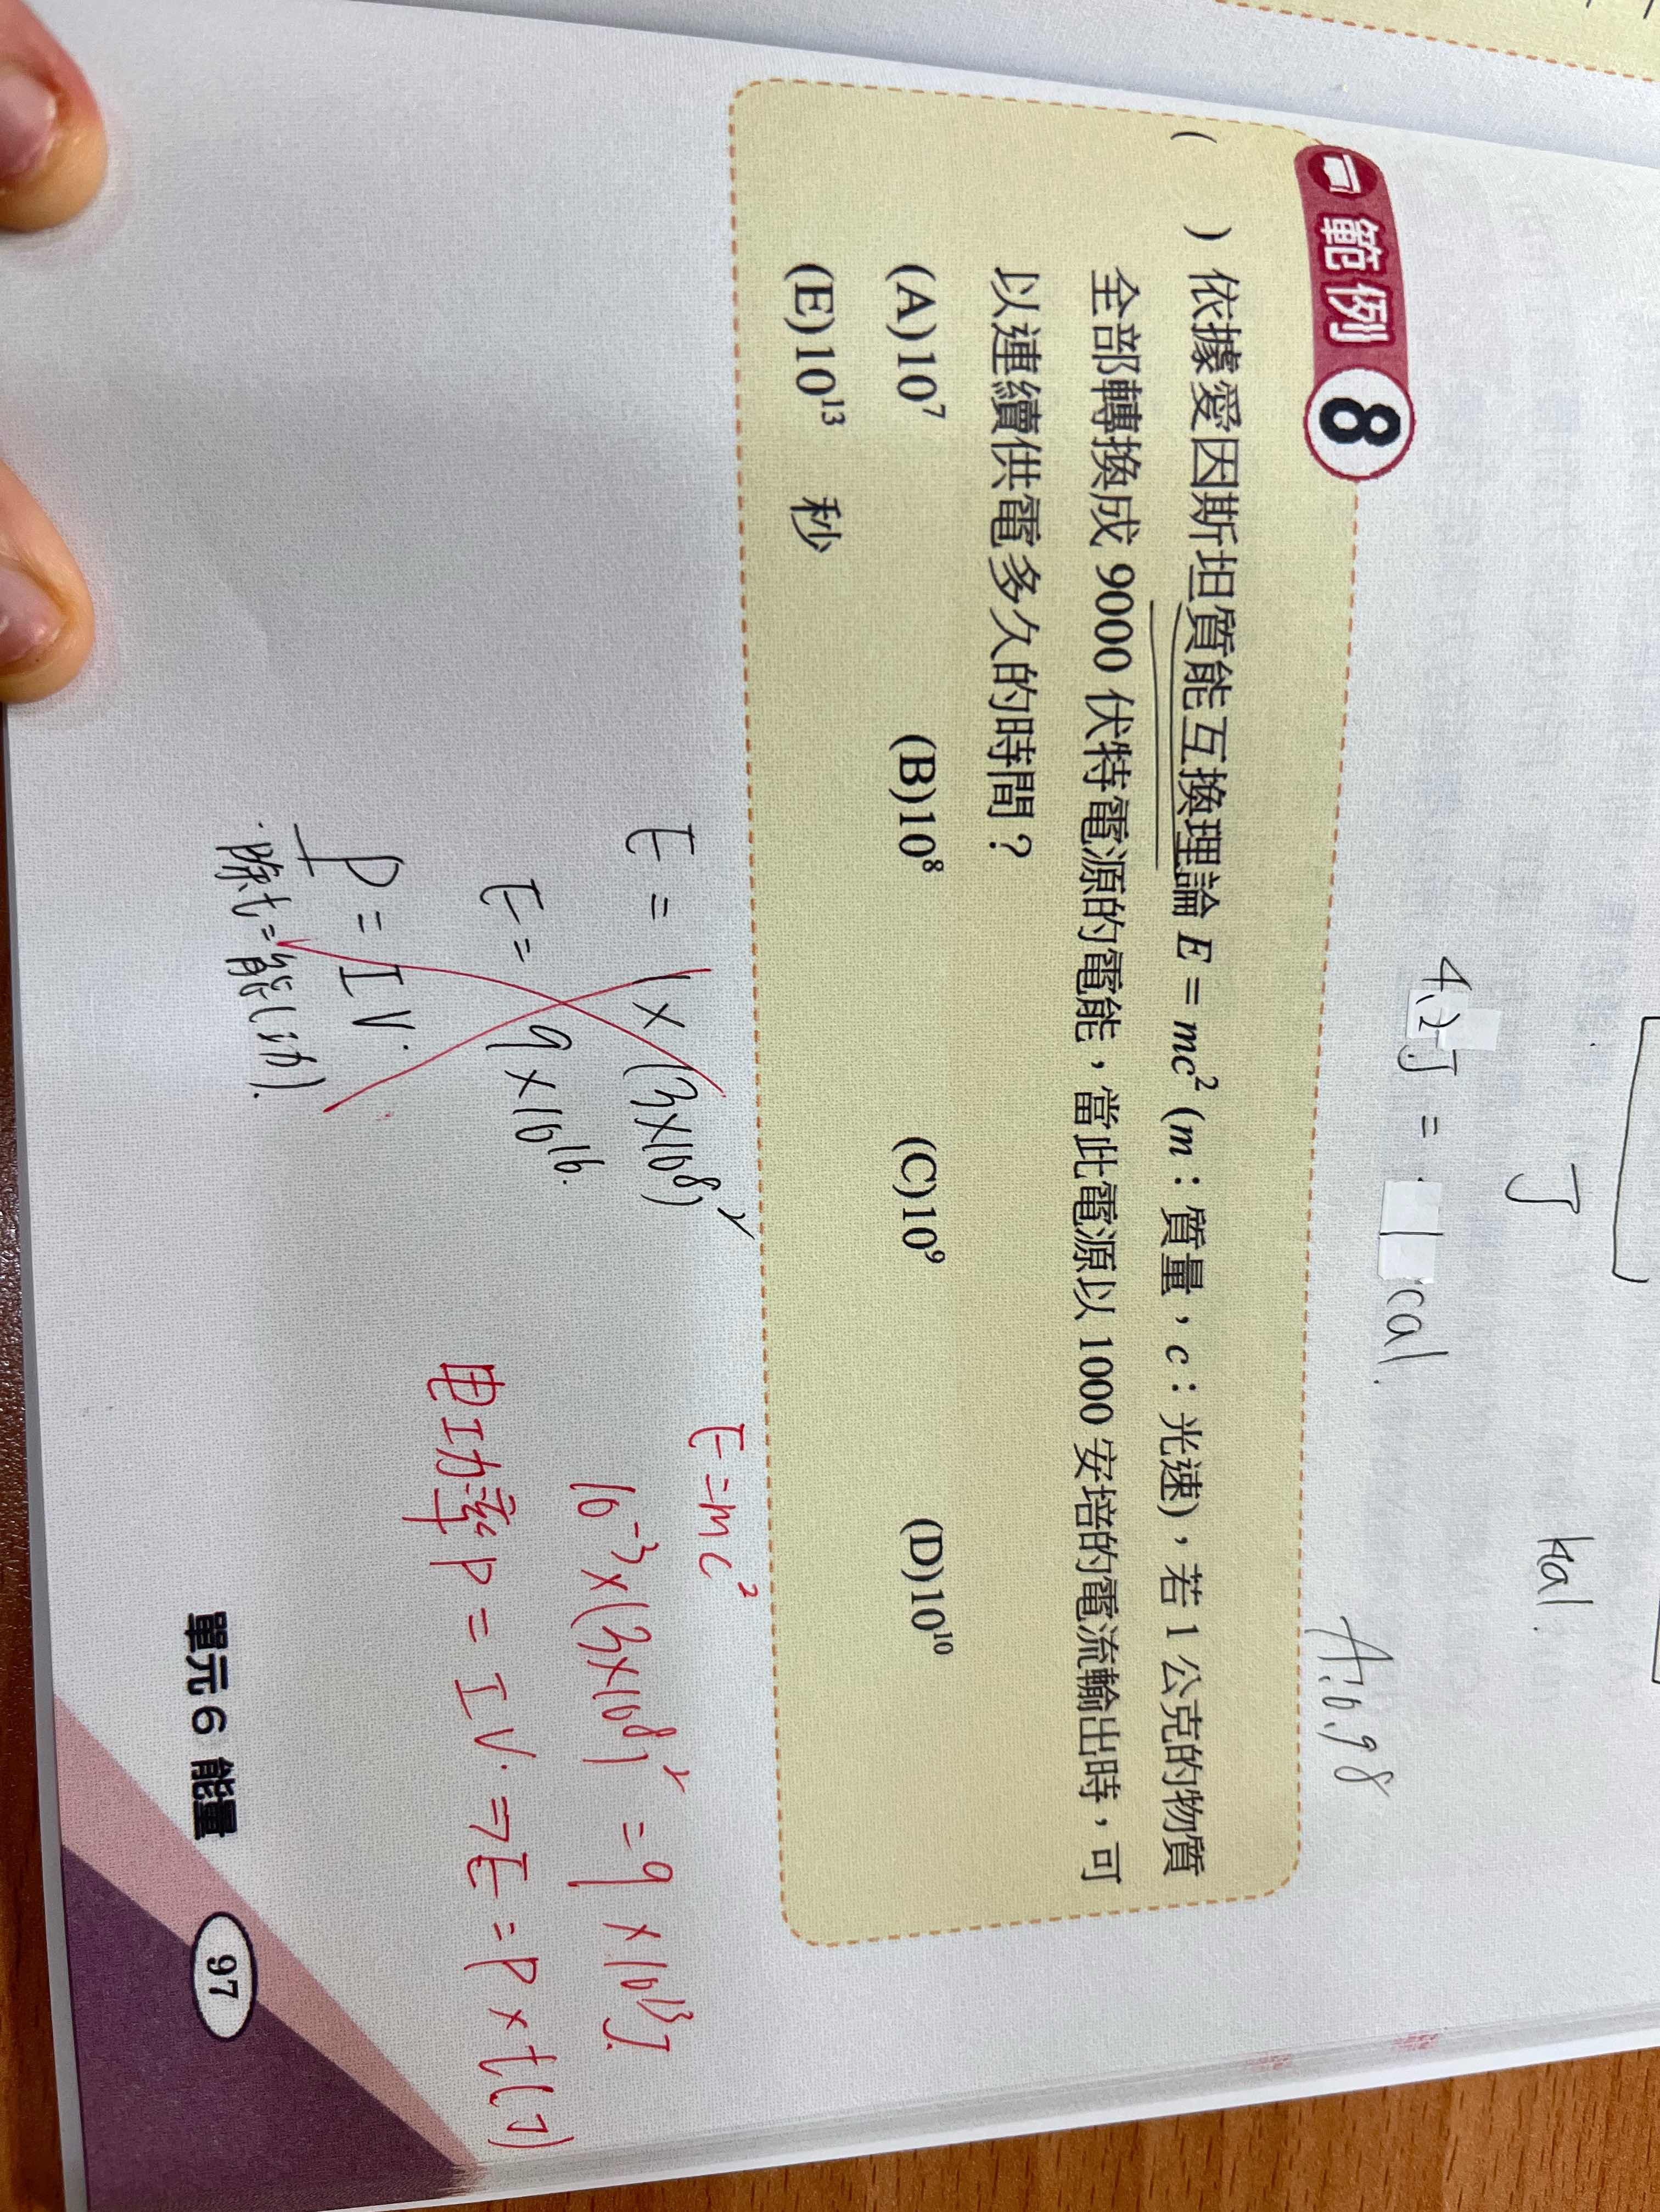 J kal.
4.2J = 1 cal.
A:b,98
範例 8
( ) 依據愛因斯坦質能互換理論 E = mc² (m:質量,c:光速),若 1 公克的物質
全部轉換成 9000 伏特電源的電能,當此電源以 1000 安培的電流輸出時,可
以連續供電多久的時間?
(A)10⁷ (B)10⁸ (C)10⁹ (D)10¹⁰
(E)10¹³ 秒
E = 1 × (3×10⁸)²
E = 9 × 10¹⁶.
P = IV.
除t = 能(功).
E = mc²
10⁻³×(3×10⁸)² = 9 × 10¹³J.
电功率 P = IV. ⇒E = P × t(J)
單元6 能量 97